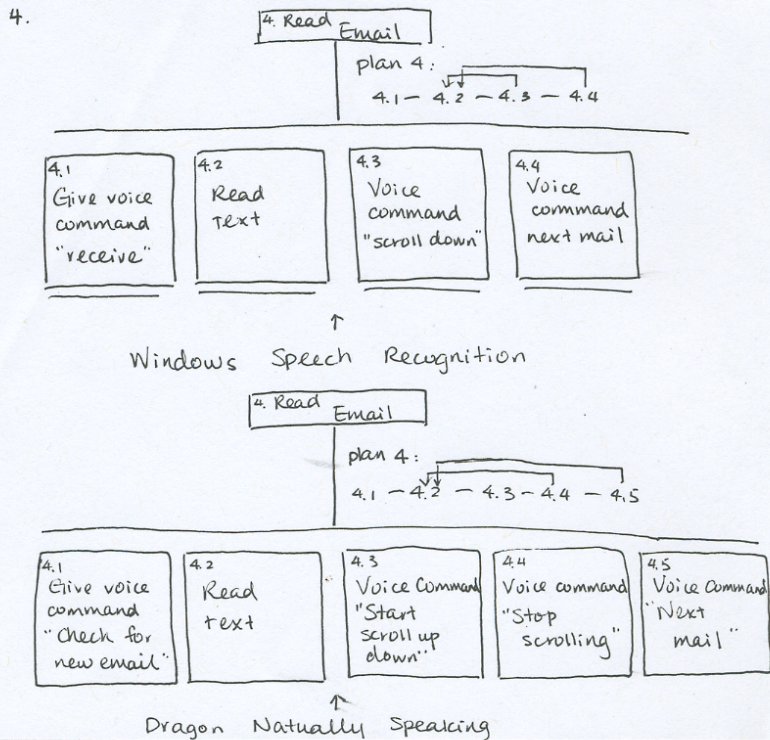 4.
4. Read
Email
plan 4:
4.1 - 4.2 - 4.3 - 4.4
4.1
Give voice
command
"receive"
4.2
Read
Text
4.3
Voice
command
"scroll down"
4.4
Voice
command
next mail
Windows Speech Recognition
4. Read
Email
plan 4:
4.1 - 4.2 - 4.3 - 4.4 - 4.5
4.1
Give voice
command
"Check for
new email"
4.2
Read
text
4.3
Voice Command
"Start
scroll up
down"
4.4
Voice command
"Stop
scrolling"
4.5
Voice Command
"Next
mail"
Dragon Natually Speaking